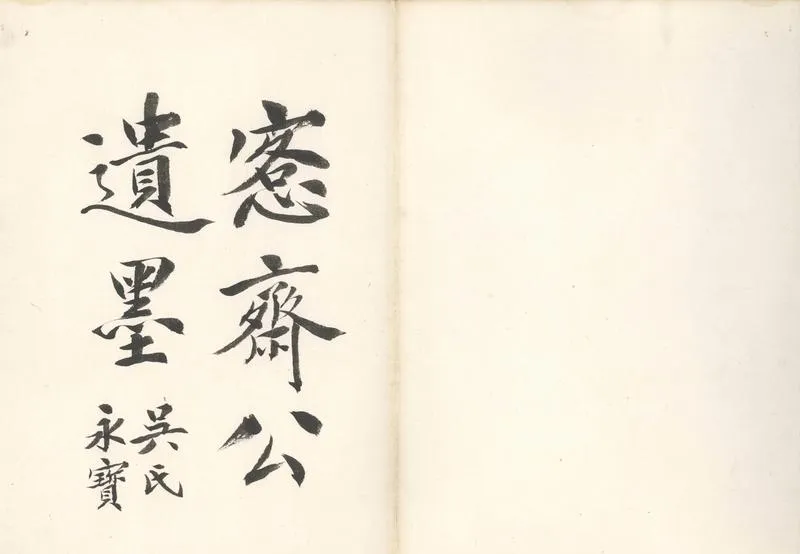 愙齋公
遺墨
吳氏
永寶